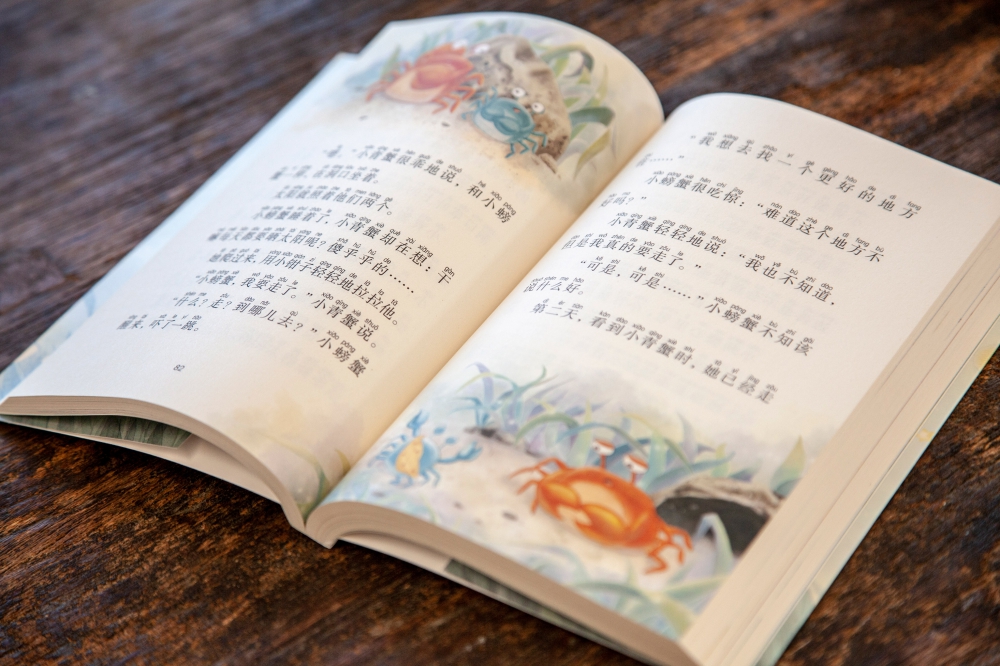 “嗯。”小青蟹很乖地说，和小螃
蟹一起，在洞口坐着。
太阳就照着他们两个。
小螃蟹睡着了，小青蟹却在想：干
嘛每天都要晒太阳呢？傻乎乎的……
她爬过来，用小钳子轻轻地拉拉他。
“小螃蟹，我要走了。”小青蟹说。
“什么？走？到哪儿去？”小螃蟹
醒来，吓了一跳。
82
“我想去找一个更好的地方
……”
小螃蟹很吃惊：“难道这个地方不
好吗？”
小青蟹轻轻地说：“我也不知道，
但是我真的要走了。”
“可是，可是……”小螃蟹不知该
说什么好。
第二天，看到小青蟹时，她已经走